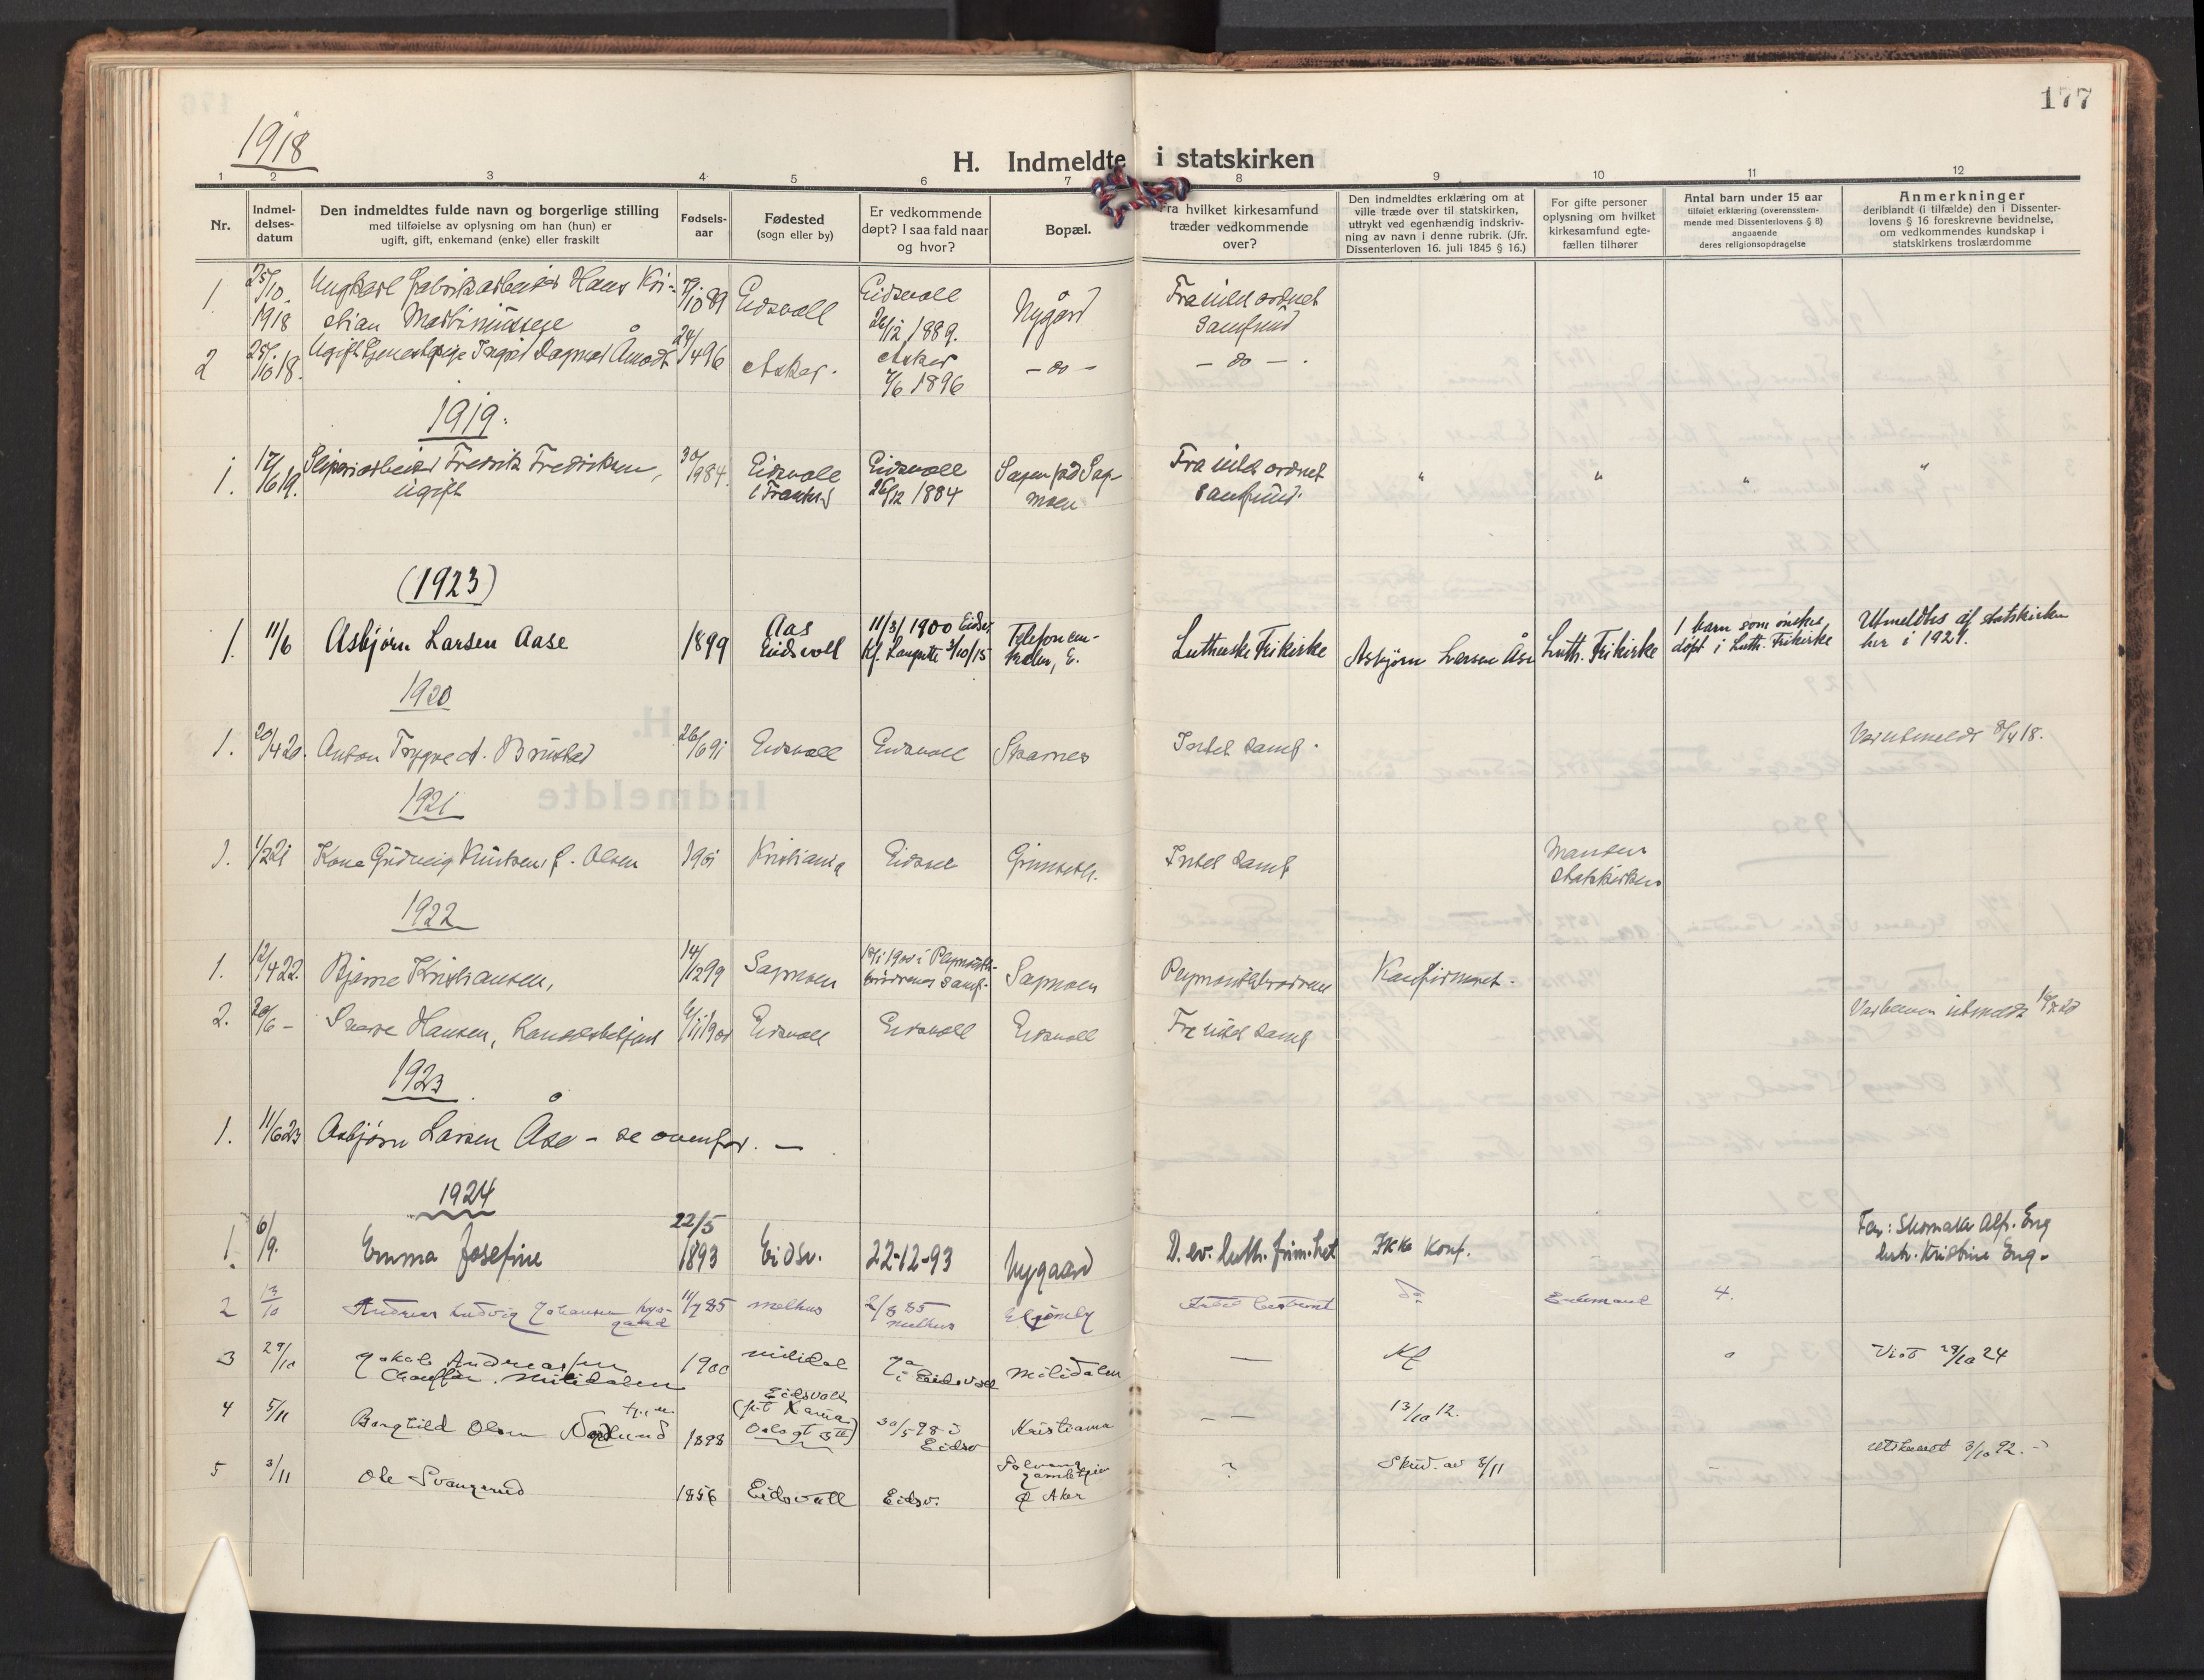 177
1918
H. Indmeldte i statskirken
1 2 3 4 5 6 7 8 9 10 11 12
Nr.
Indmel-
delses-
datum
Den indmeldtes fulde navn og borgerlige stilling
med tilføielse av oplysning om han (hun) er
ugift, gift, enkemand (enke) eller fraskilt
Fødsels-
aar
Fødested
(sogn eller by)
Er vedkommende
døpt? I saa fald naar
og hvor?
Bopæl.
Fra hvilket kirkesamfund
træder vedkommende
over?
Den indmeldtes erklæring om at
ville træde over til statskirken,
uttrykt ved egenhændig indskriv-
ning av navn i denne rubrik. (Jfr.
Dissenterloven 16. juli 1845 § 16.)
For gifte personer
oplysning om hvilket
kirkesamfund egte-
fællen tilhører
Antal barn under 15 aar
tilføiet erklæring (overensstem-
mende med Dissenterlovens § 8)
angaaende
deres religionsopdragelse
Anmerkninger
deriblandt (i tilfælde) den i Dissenter-
lovens § 16 foreskrevne bevidnelse,
om vedkommendes kundskap i
statskirkens troslærdomme
1 25/10 1918 Ungkarl fabrikarbeider Hans Kri-
stian Eidsvoll Eidsvoll
26/12 1889. Nygård Fra intet ordnet
samfund
2 25/10 18. Ugift tjenestepige Ingrid Dagmar Åmodt 24/4 96 Asker. Asker
7/6 1896 - do - - do - .
1919.
1. 17/6 19. Sliperiarbeider Fredrik Fredriksen,
ugift 30/9 84 Eidsvoll Eidsvoll
26/12 1884 Sagen på Sag-
moen Fra intet ordnet
samfund. " " " "
(1923)
1. 11/6 Asbjørn Larsen Aase 1899 Aas
Eidsvoll 11/3 1900 Eidsv.
Kf. Langsete 3/10/15 Telefoncen-
tralen, E. Lutherske Frikirke Asbjørn Larsen Åse Luth. Frikirke 1 barn som ønskes
døpt i Luth. Frikirke Utmeldtes af statskirken
her i 1921.
1920
1. 20/4 20. Anton Trygve A. Brustad 26/6 91 Eidsvoll Eidsvoll Skarnes Intet samf. Var utmeldt 8/4 18.
1921
1. 1/2 21 Kone Gudveig Knutsen, f. Olsen 1901 Kristiania Eidsvoll Intet samf Manden
statskirken
1922
1. 12/4 22. Bjarne Kristiansen, 14/12 99 Sagmoen 18/1 1900 i Plymouth-
brødrenes samf. Sagmoen Plymouthbrødrene Konfirmeret.
2. 20/6 - Hansen, Eidsvoll Eidsvoll Eidsvoll Fra intet samf utmeldt
1923
1. 11/6 23 Asbjørn Larsen Åse - se ovenfor. -
1924
1. 6/9. Emma Josefine 22/5
1893 Eidsv. 22-12-93 Nygaard D. ev. luth. frim.het Ikke konf. Far: Skomaker Alf. Eng
Kristine Eng.
2 13/10 Andreas Ludvig Johansen
11/7 85 Melhus 2/8 85
Melhus do Enkemand 4.
3 29/10 Jakob Andreassen
Chauffør. Milidalen 1900 Milidal Ja
i Eidsvoll Milidalen — Kf 0 Viet 29/10 24
4 5/11 Borghild Olsen 1898 Eidsvoll
30/5 98 i
Eidsv Kristiania - - 13/10 12.
5 3/11 Ole Svangerud 1856 Eidsvoll Eidsv. Aker ? Skrid. av 3/11 - 3/10 92.